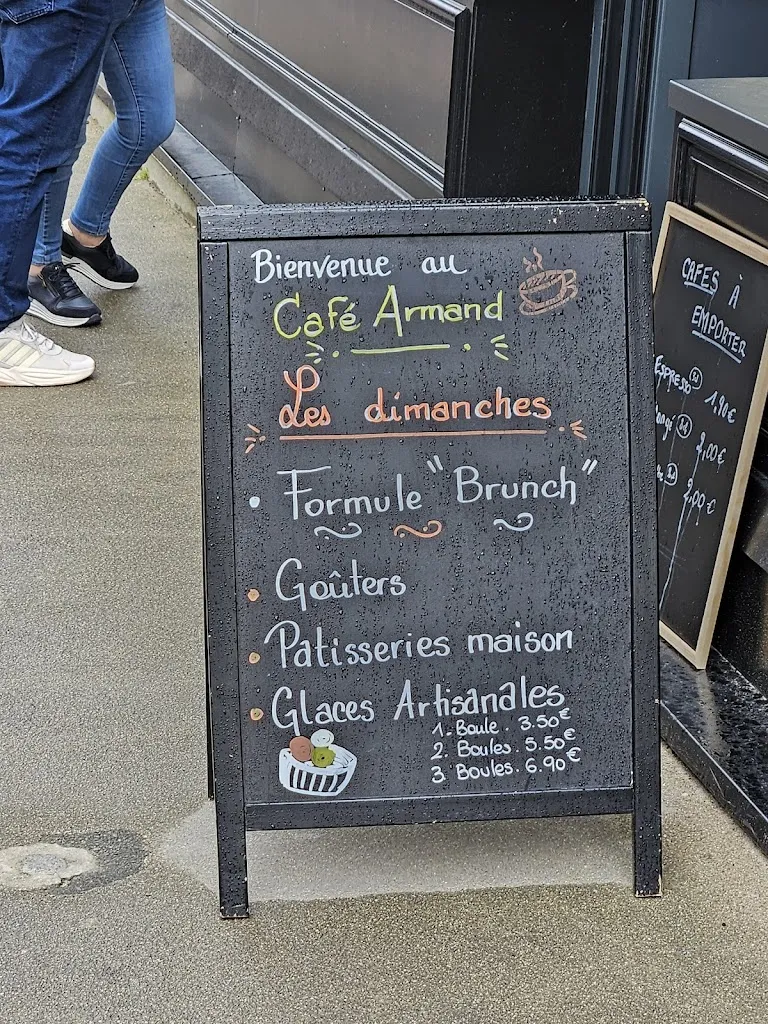 Bienvenue au
Café Armand
Les dimanches
• Formule "Brunch"
• Goûters
• Patisseries maison
• Glaces Artisanales
1. Boule. 3.50€
2. Boules. 5.50€
3. Boules. 6.90€
CAFES À
EMPORTER
ESPRESSO 1,90€
2,00€
2,00€